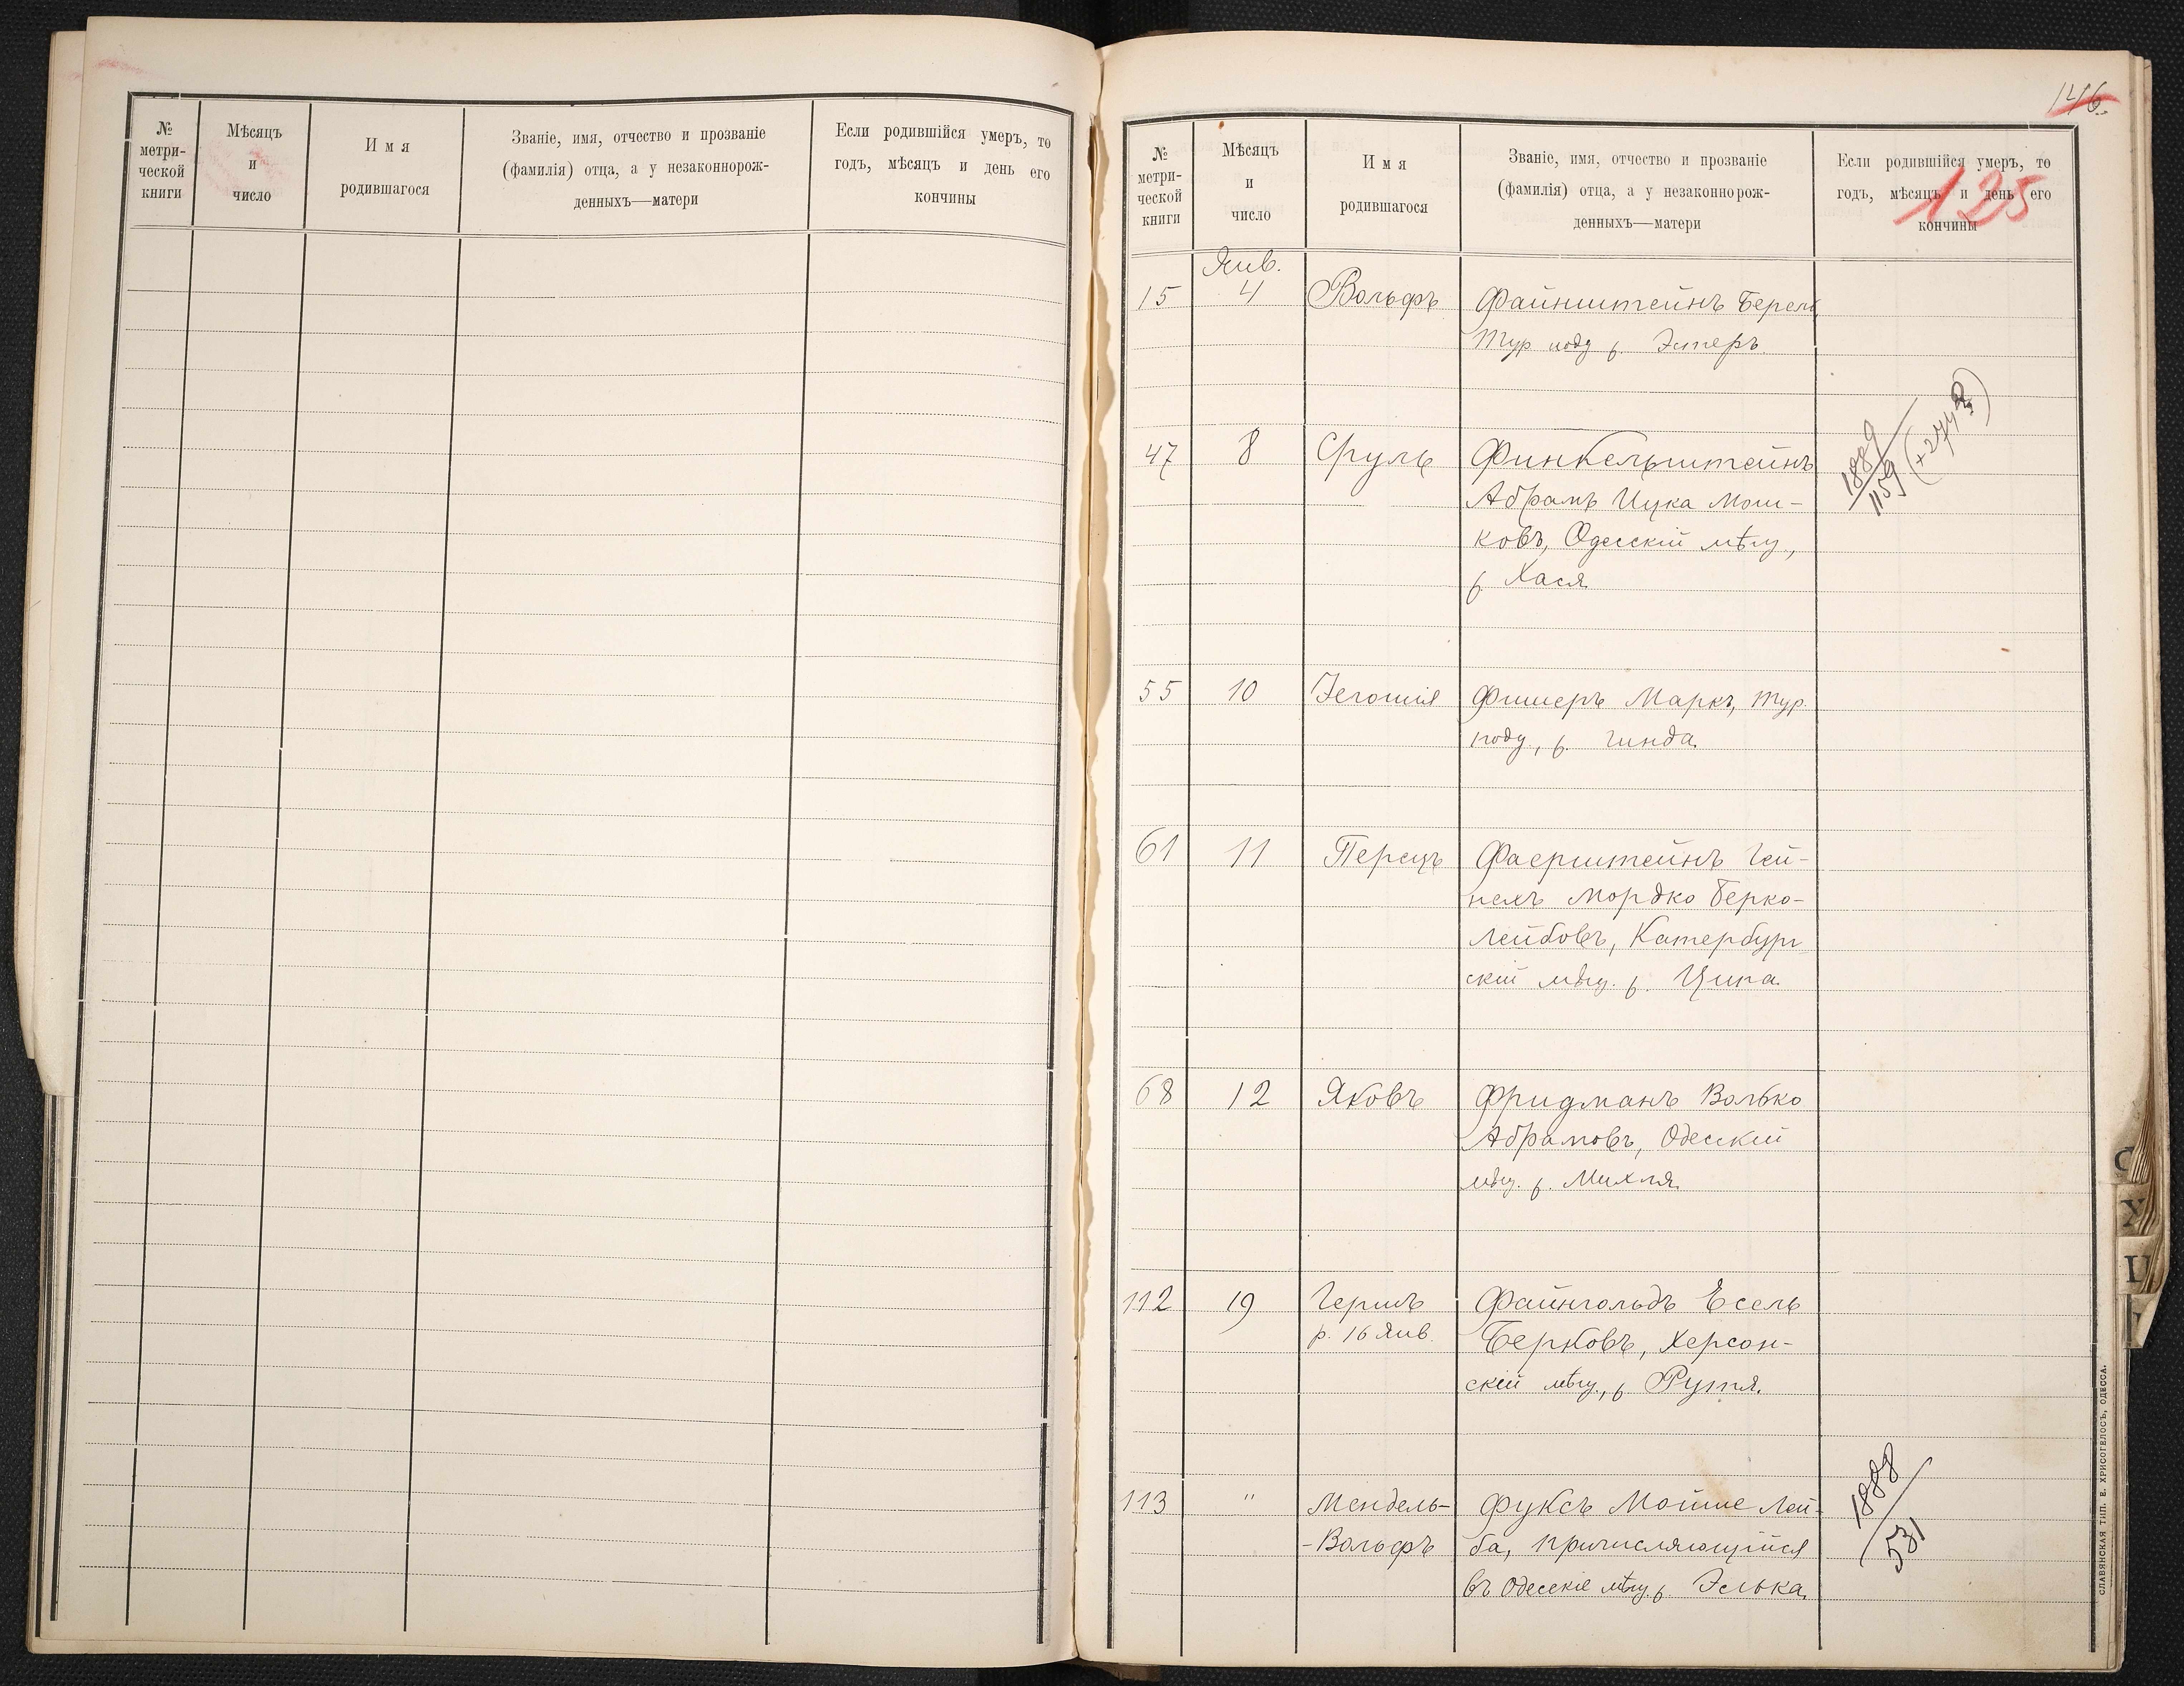 № метри-ческой книги
Мѣсяцъ и число
Имя родившагося
Званіе, имя, отчество и прозваніе
(фамилія) отца, а у незаконнорож-
денныхъ—матери
Если родившійся умеръ, то
годъ, мѣсяцъ и день его
кончины
146.
125
№ метри-ческой книги
Мѣсяцъ и число
Имя родившагося
Званіе, имя, отчество и прозваніе
(фамилія) отца, а у незаконнорож-
денныхъ—матери
Если родившійся умеръ, то
годъ, мѣсяцъ и день его
кончины
Янв.
15 4 Вольфъ Файнштейнъ Берель
Тур подд ж. Эстеръ
47 8 Сруль Финкельштейнъ
Абрамъ Ицка Мош-
ковъ, Одесскій мѣщ,
ж. Хася
1889
1159
55 10 Іегошія Фишеръ Маркъ, Тур.
подд, ж. Гинда
61 11 Перецъ Фаерштейнъ Гей-
нехъ Мордко Берко-
Лейбовъ, Катербург
скій мѣщ. ж. Ципа
68 12 Яковъ Фридманъ Волько
Абрамовъ, Одесскій
мѣщ. ж. Михля
112 19 Гершъ Файнгольдъ Есель
р. 16 Янв. Берковъ, Херсон-
скій мѣщ., ж. Рухля.
113 " Мендель- Фуксъ Мойше Лей-
-Вольфъ ба, причисляющійся
въ Одесскіе мѣщ. ж. Элька.
1888
531
С
Х
Ц
СЛАВЯНСКАЯ ТИП. Е. ХРИСОГЕЛОСЪ, ОДЕССА.